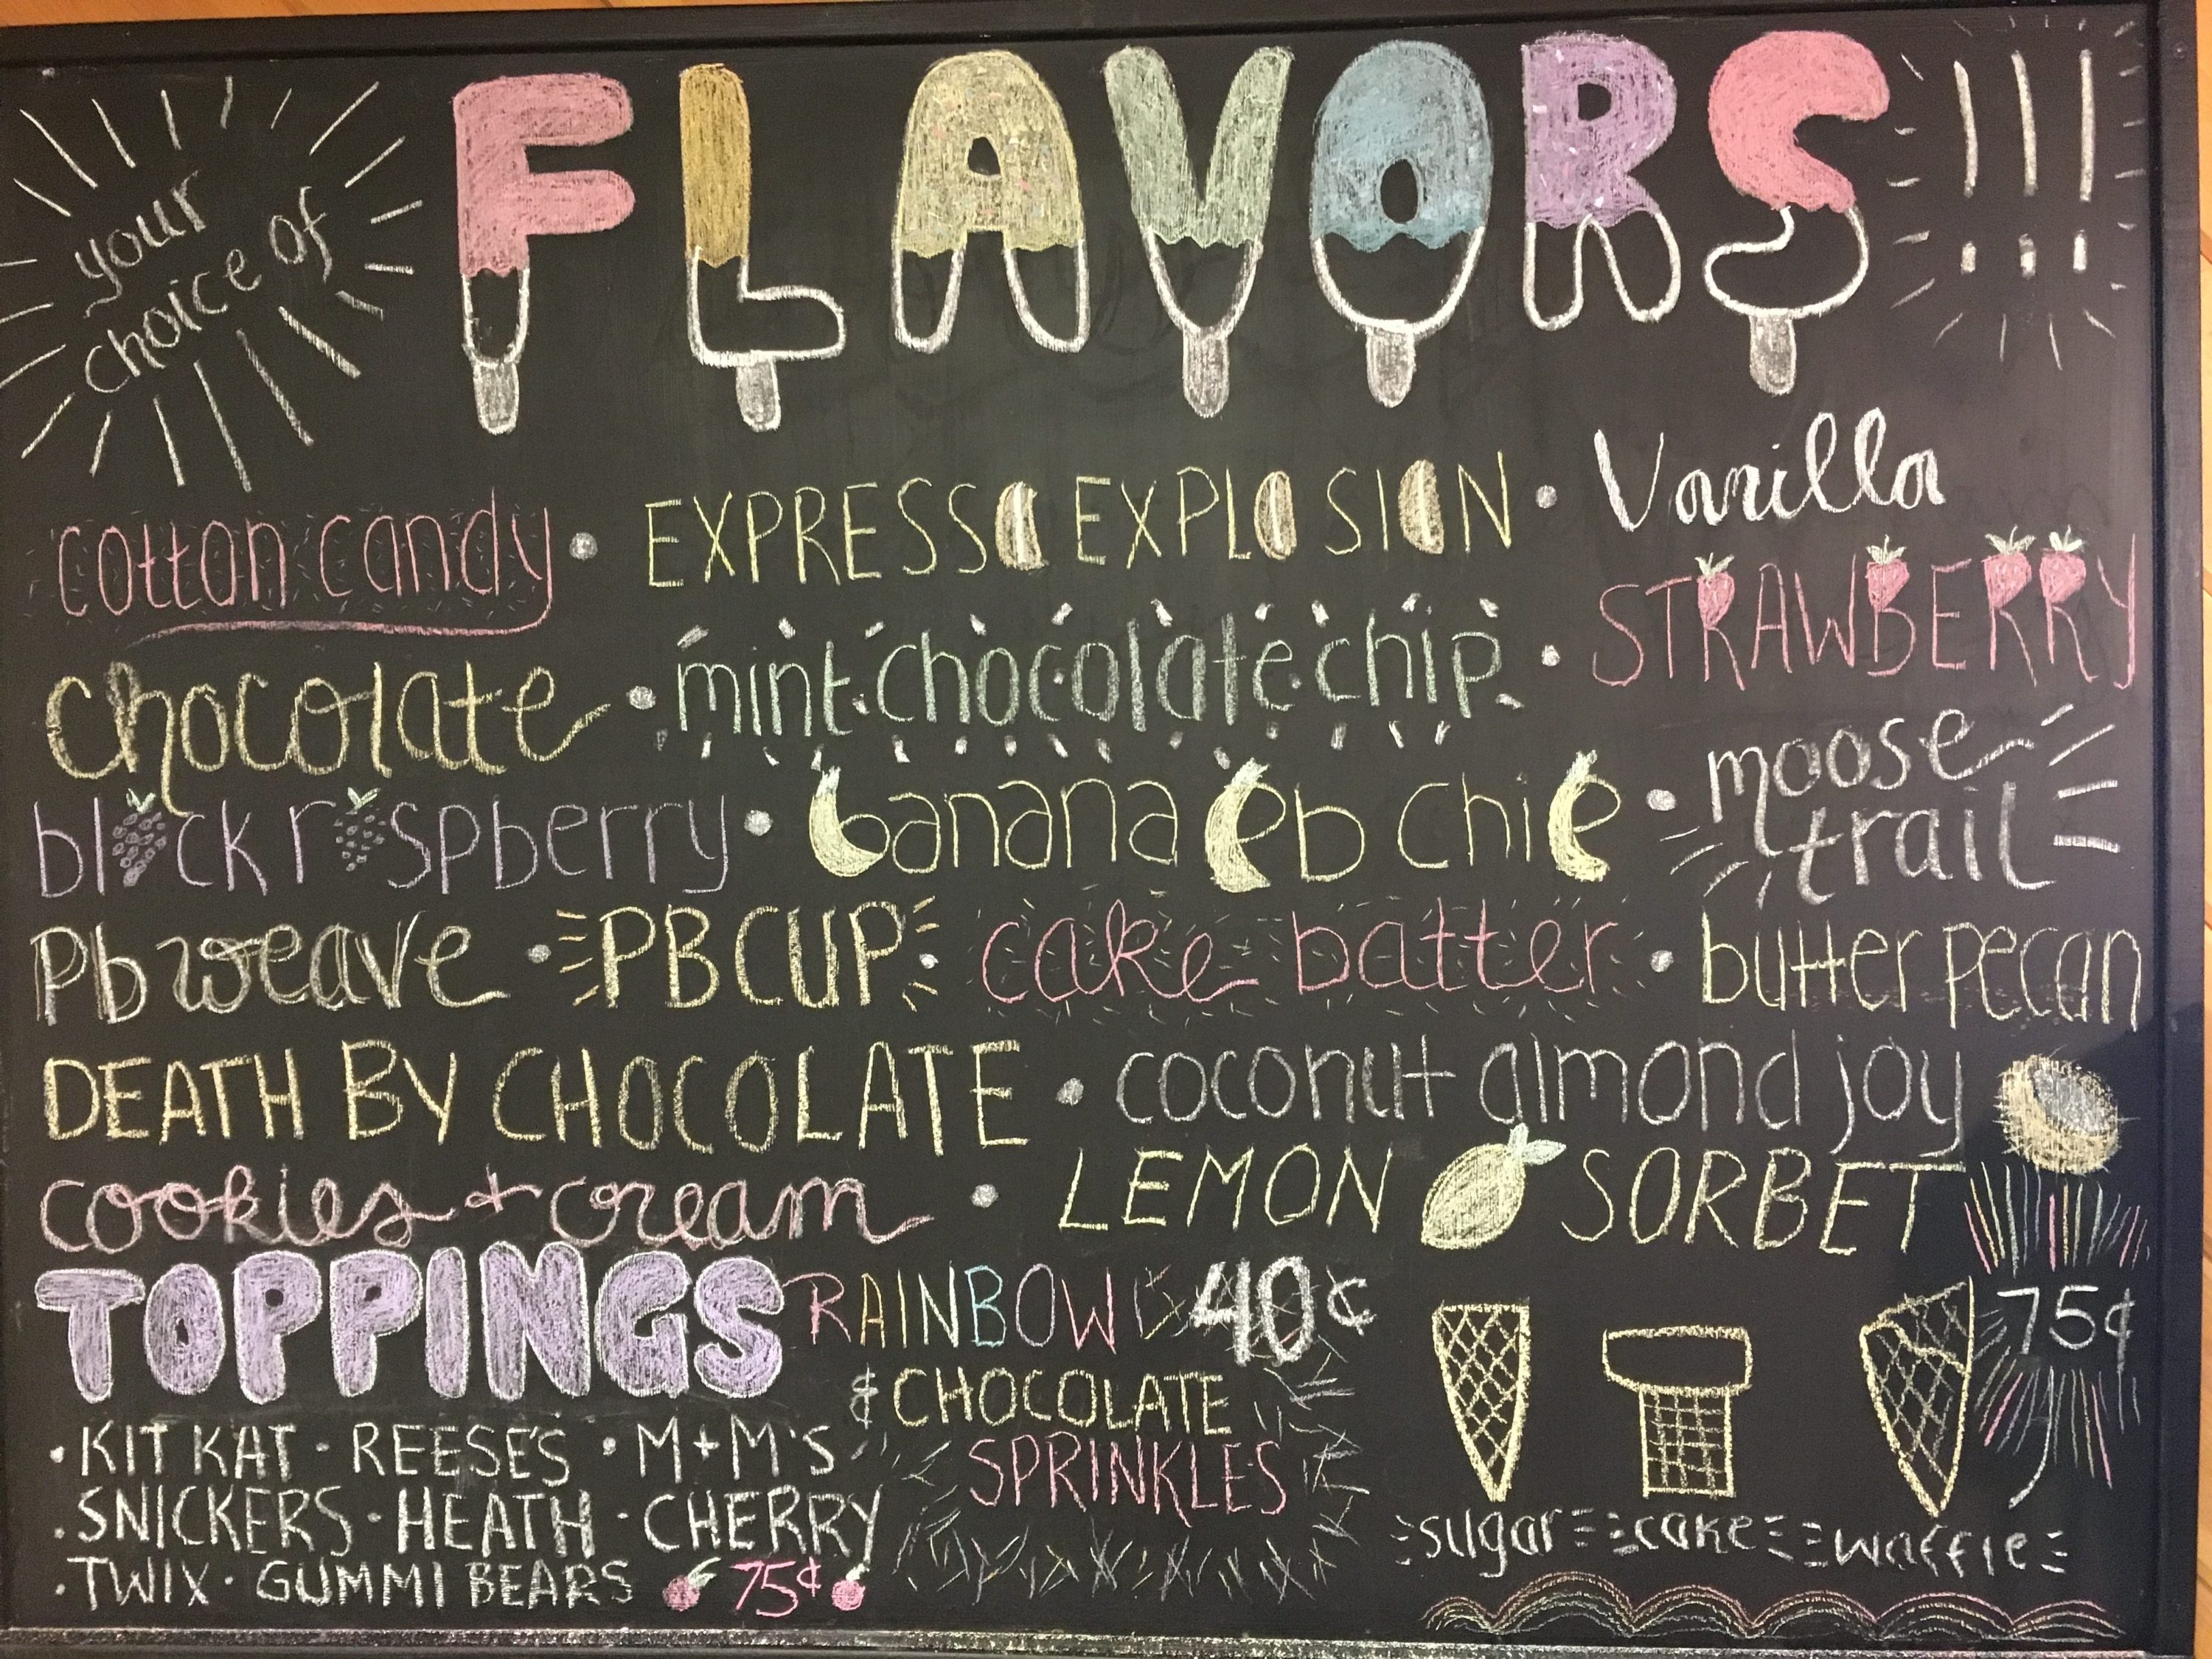 your
choice of
FLAVORS!!!
cotton candy • EXPRESSO EXPLOSION • Vanilla
chocolate • mint chocolate chip • STRAWBERRY
black raspberry • banana pb chip • moose
trail
Pb weave • PB CUP • cake batter • butter pecan
DEATH BY CHOCOLATE • coconut almond joy
cookies + cream • LEMON SORBET
TOPPINGS
• KIT KAT • REESE'S • M+M's
• SNICKERS • HEATH • CHERRY
• TWIX • GUMMI BEARS 75¢
RAINBOW 40¢
& CHOCOLATE
SPRINKLES
75¢
sugar cake waffle